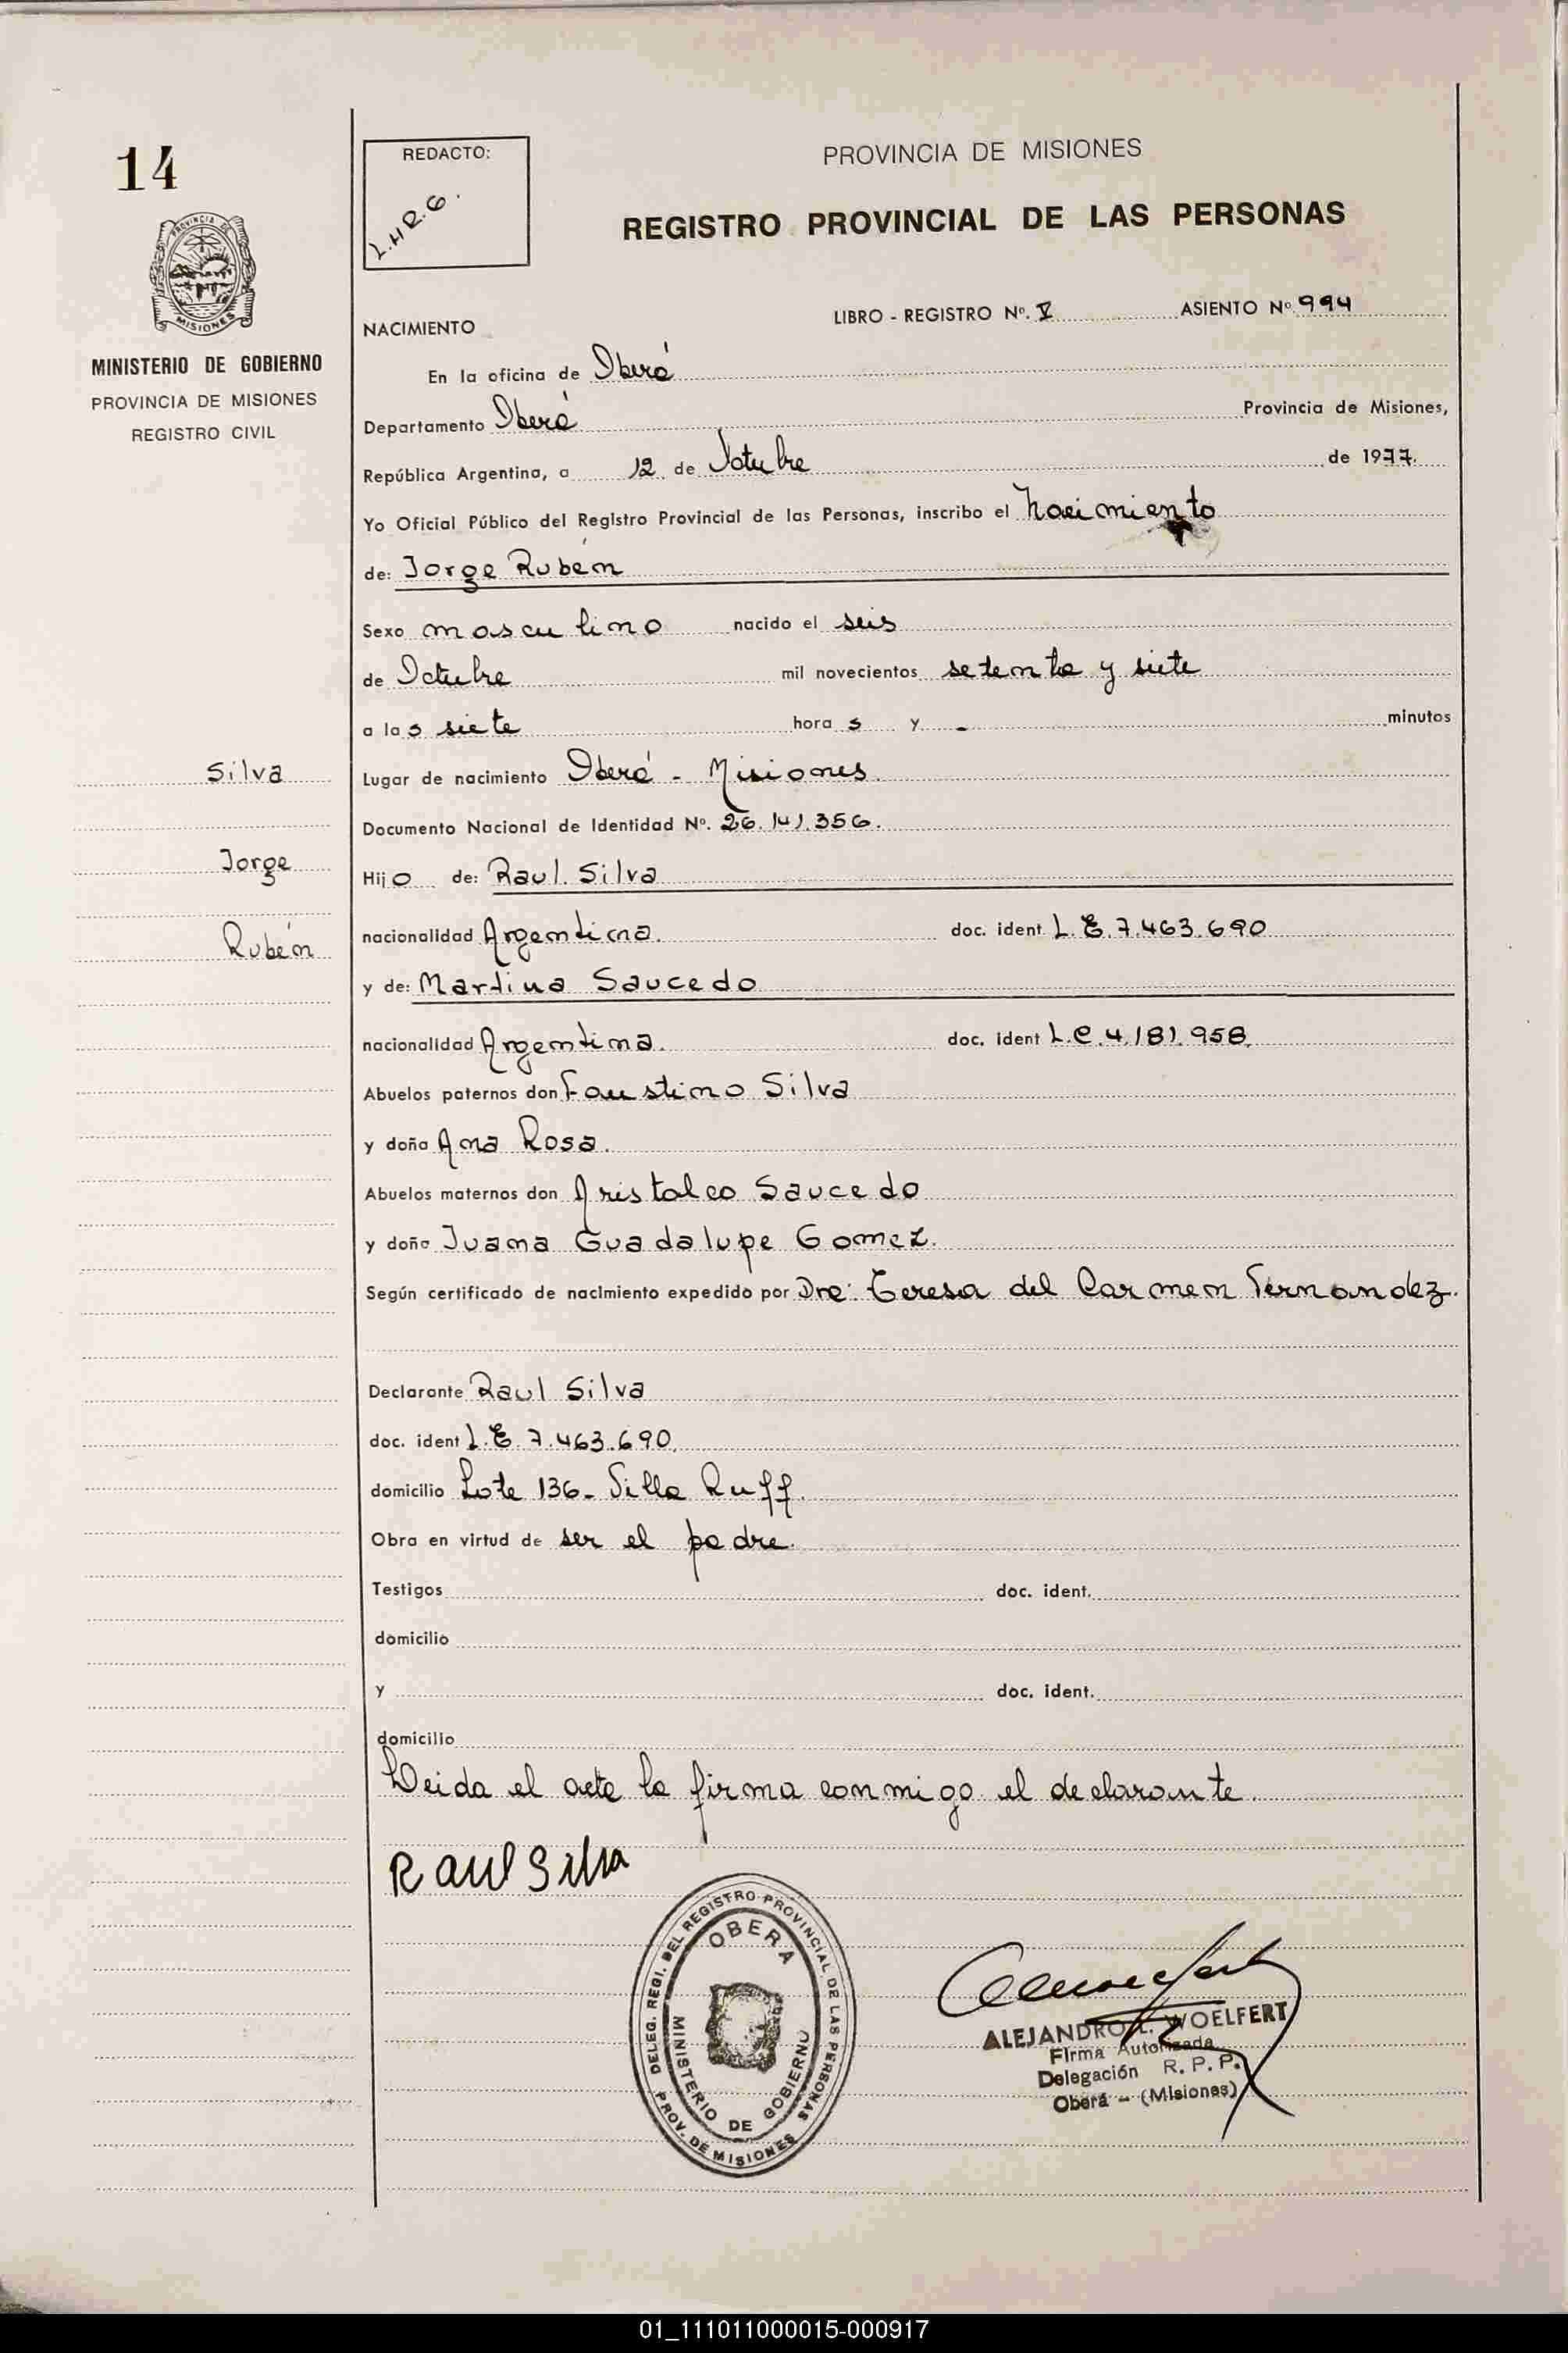 14
REDACTO:
L.H.R.G.
PROVINCIA DE MISIONES
REGISTRO PROVINCIAL DE LAS PERSONAS
PROVINCIA DE
MISIONES
MINISTERIO DE GOBIERNO
PROVINCIA DE MISIONES
REGISTRO CIVIL
NACIMIENTO
LIBRO - REGISTRO Nº. V ASIENTO Nº 994
En la oficina de Oberá
Departamento Oberá Provincia de Misiones,
República Argentina, a 12 de Octubre de 1977.
Yo Oficial Público del Registro Provincial de las Personas, inscribo el Nacimiento
de: Jorge Rubén
Sexo masculino nacido el seis
de Octubre mil novecientos setenta y siete
a las siete horas y - minutos
Silva
Lugar de nacimiento Oberá - Misiones.
Documento Nacional de Identidad Nº. 26.141.356.
Jorge
Hijo de: Raul Silva
Rubén
nacionalidad Argentina. doc. ident L.E. 7.463.690
y de: Martina Saucedo
nacionalidad Argentina. doc. ident L.C. 4.181.958.
Abuelos paternos don Faustino Silva
y doña Ana Rosa.
Abuelos maternos don Aristoleo Saucedo
y doña Juana Guadalupe Gomez.
Según certificado de nacimiento expedido por Dra: Teresa del Carmen Fernandez.
Declarante Raul Silva
doc. ident L.E. 7.463.690.
domicilio Lote 136- Villa Ruff.
Obra en virtud de ser el padre.
Testigos doc. ident.
domicilio
y doc. ident.
domicilio
Leida el acta la firma conmigo el declarante.
Raul Silva
DELEG. REGI. DEL REGISTRO PROVINCIAL DE LAS PERSONAS
PROV. DE MISIONES
OBERA
MINISTERIO DE GOBIERNO
ALEJANDRO L. WOELFERT
Firma Autorizada
Delegación R. P. P.
Oberá - (Misiones)
01_111011000015-000917